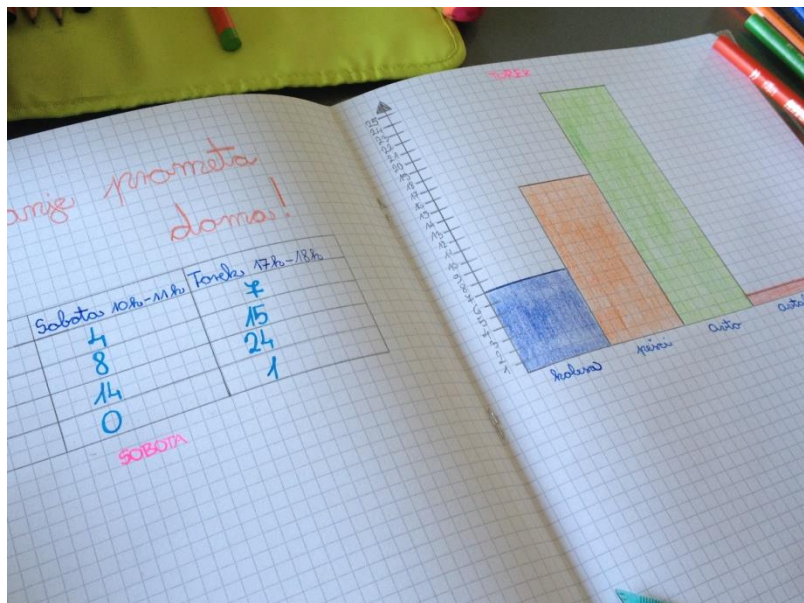 anje prometa
doma!
Sobota 10h-11h Torek 17h-18h
4 7
8 15
14 24
0 1
SOBOTA
TOREK
25
24
23
22
21
20
19
18
17
16
15
14
13
12
11
10
9
8
7
6
5
4
3
2
1
kolesa avto